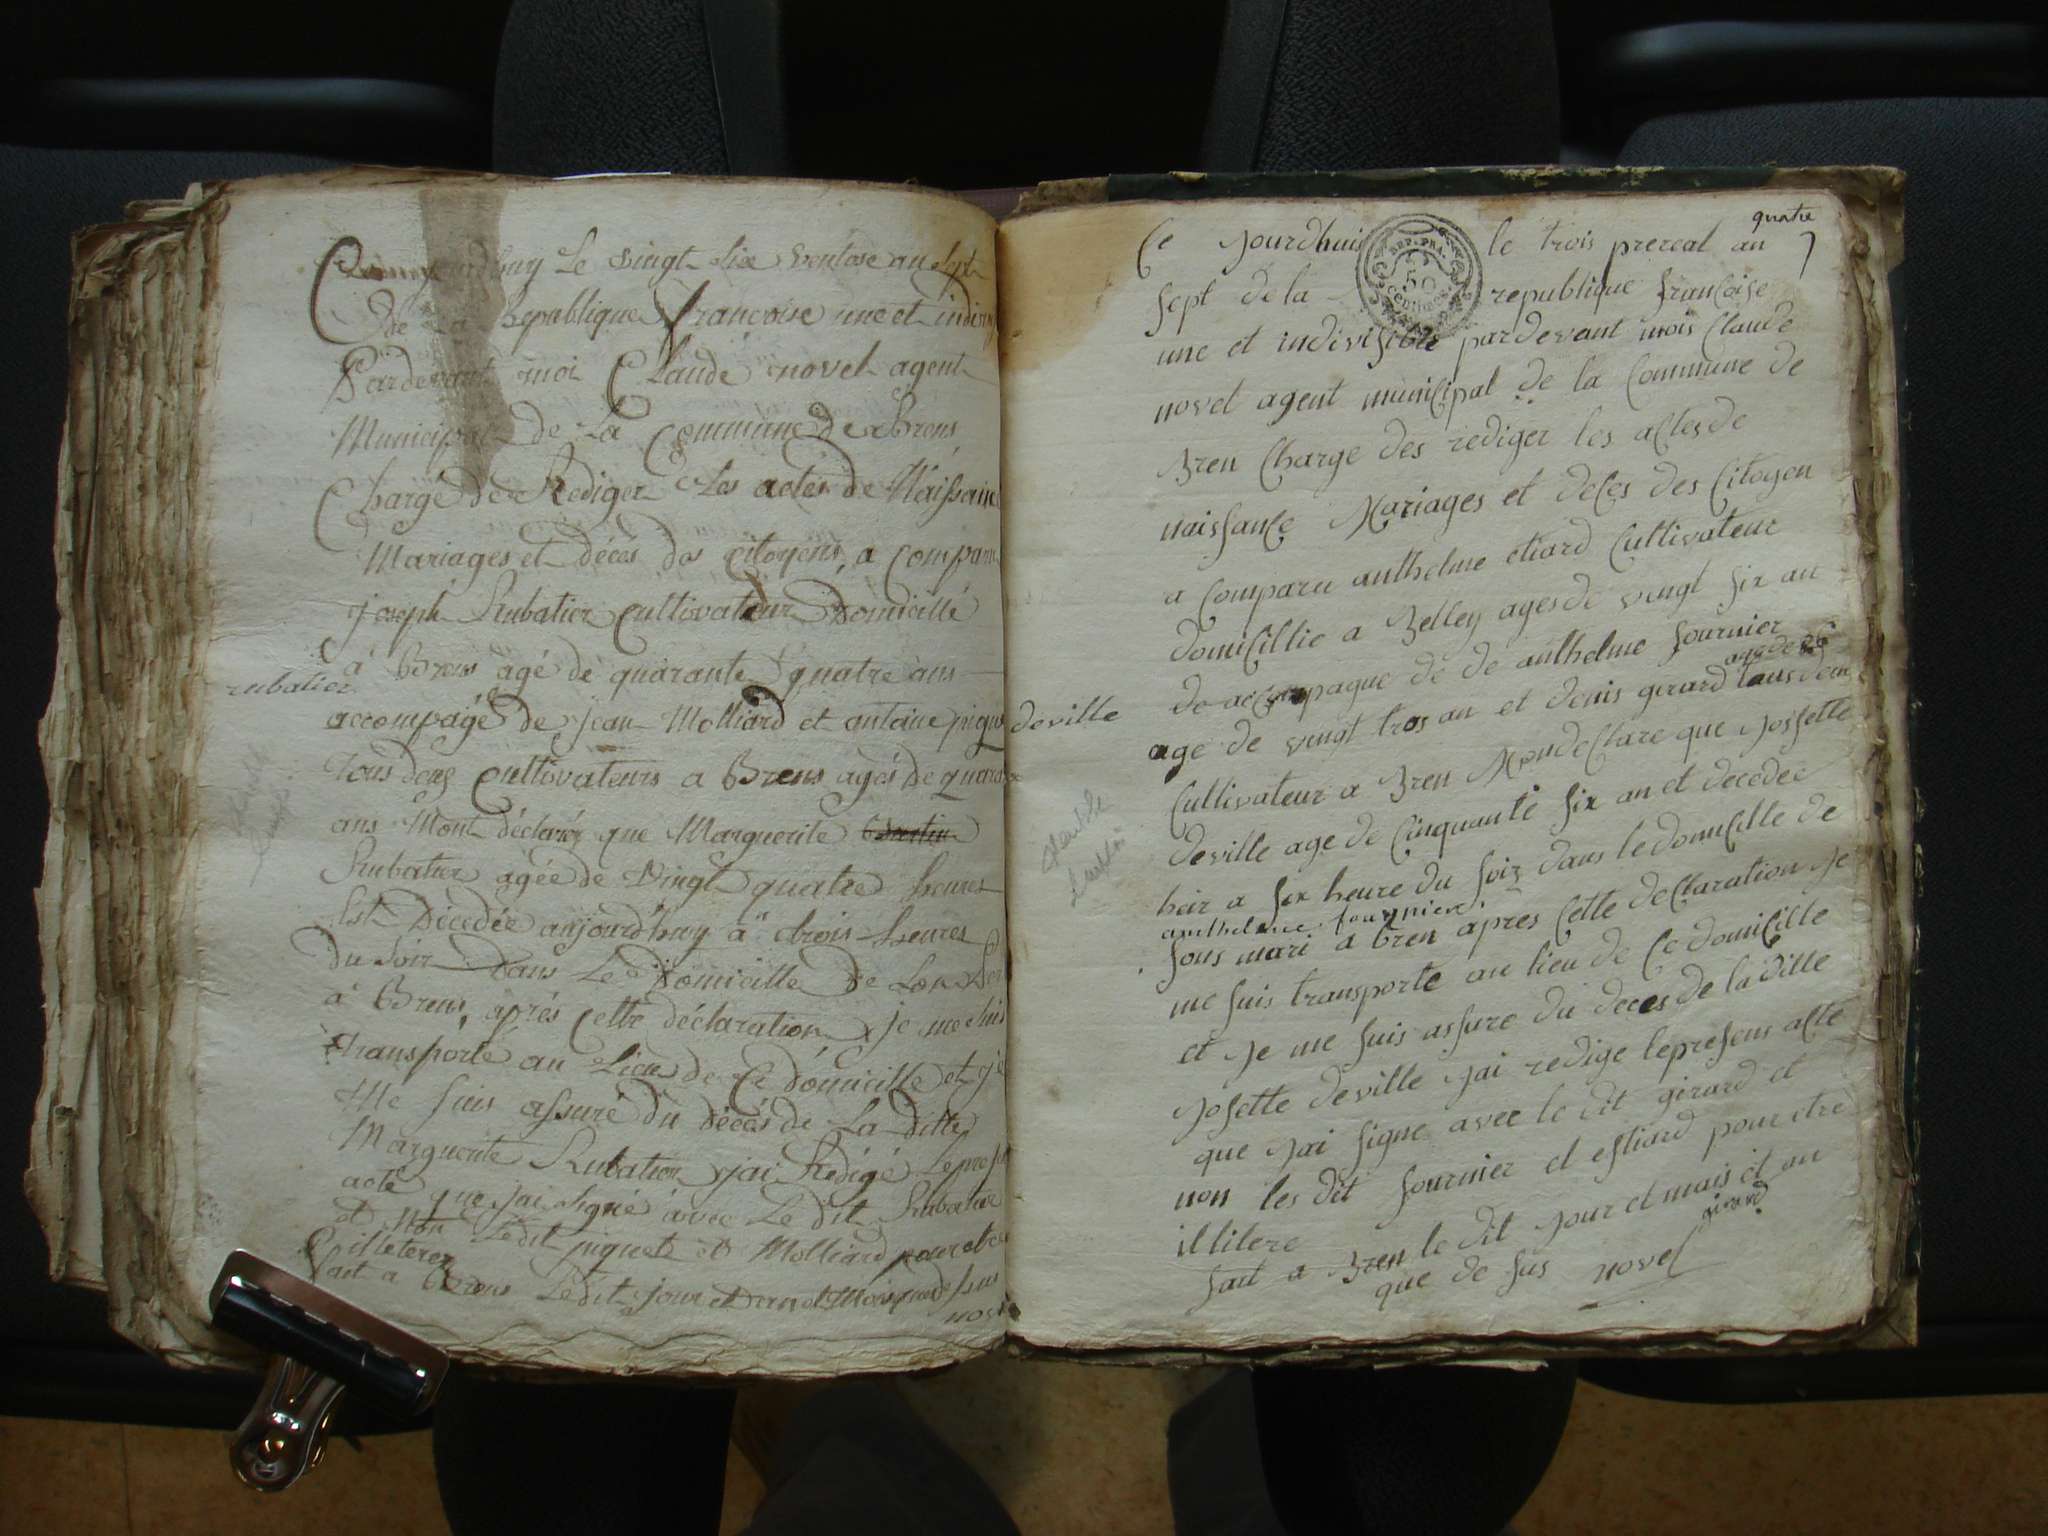 Ce jourdhuy Le vingt dix ventose an sept
De La Republique francoise une et indivi
Pardevant moi Claude novel agent
Municipal de La Commune de Brens
Chargé de Rediger Les actes de Naissance
Mariages et décés des citoyens, a comparu
joseph Rubatier cultivateur Domicillé
a Brens agé de quarante quatre ans
rubatier
accompagé de jean Molliard et antoine piguet
Tous deux cultivateurs a Brens agés de quara
ans Mont déclaréz que Marguerite
Rubatier agée de vingt quatre heures
Est Décedée aujourd'huy a trois heures
du soir Dans Le Domicille de son
a Brens, aprés Cette déclaration je me suis
transporté au Lieu de Ce domicille et je
Me suis assuré du décés de La ditte
Marguerite Rubatier jai Redigé Le pres
acte que jai signé avec Le dit Rubatier
et Non Ledit piguet et Molliard pour etre
illeterez
fait a Brens Ledit jour et an et Mois que dessus
novel
quatre
Ce jourdhuis le trois prereal an
REP. FRA.
50
CENTIMES
sept de la republique francoise
une et indivisible pardevant mois Claude
novel agent municipal de la Commune de
Bren Charge des rediger les actes de
naissance Mariages et deces des Citoyen
a comparu anthelme etiard Cultivateur
domicillie a Belley ages de vingt six an
de accompague de de anthelme fournier
age de
deville
age de vingt tros an et denis gerard tous deux
Cultivateur a Bren Mondeclare que Josfette
deville age de Cinquante six an et decedee
heir a six heure du soir dans le domicille de
anthelme fournier
sons mari a bren apres Cette declaration Je
me suis transporte au lieu de Ce domicille
et Je me suis assure du deces de la ditte
Josette deville Jai redige le presens acte
que Jai signe avec le dit girard et
non les dit fournier et estiard pour etre
illitere
fait a Bren le dit Jour et mais et an
girard
que de sus novel